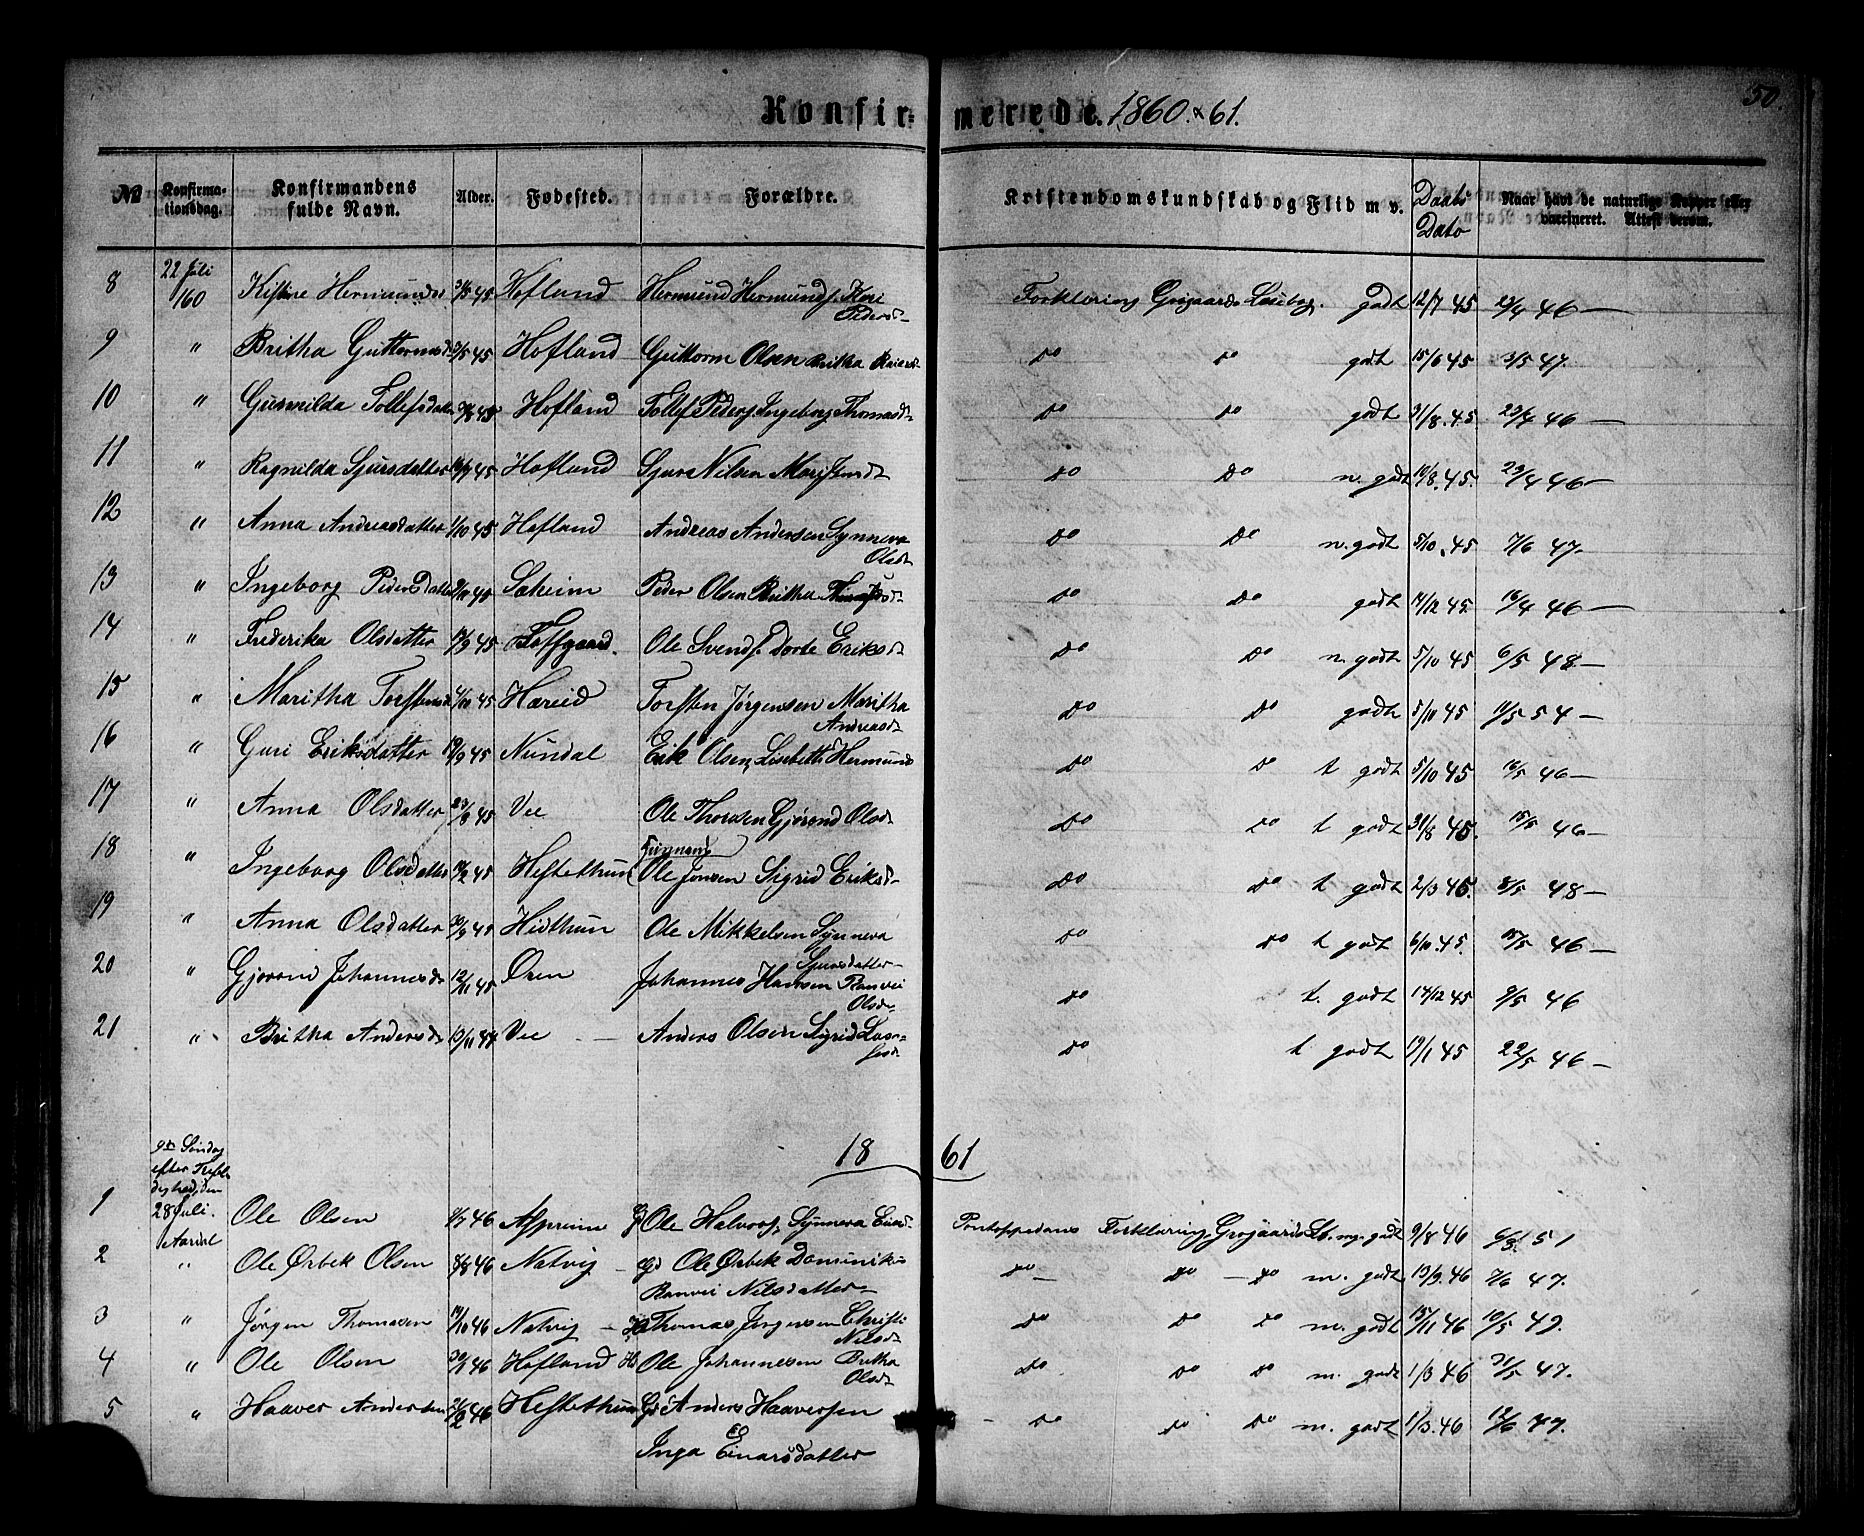 50.
Konfirmerede. 1860. & 61.
№ Konfirmationsdag. Konfirmandens fulde Navn. Alder. Fødested. Forældre. Kristendomskundskab og Flid m v. Daabs Dato Naar havt de naturlige Kopper eller vaccineret. Attest derom.
8 22 Juli /60 Kistine Hermundsd 45 Hofland Hermund Hermunds. Kari Pedersd Forklaring Grøgaards Læsebog. godt 12/7 45 23/4 46 —
9 " Britha Guttormsd 45 Hofland Guttorm Olsen Britha godt 15/6 45 3/5 47.
10 " Gunnilda Tollefsdatter 45 Hofland Tollef Peders. Ingeborg Thomasd do do godt 31/8. 45 23/4 46 —
11 " Ragnilda Sjursdatter 45 Hofland Sjur Nilsen Mari do do n. godt 10/8. 45. 23/4 46 —
12 " Anna Andreasdatter /10 45 Hofland Andreas Andersen Synneva Olsd do do n. godt 5/10. 45 7/6 47.
13 " Ingeborg Pedersdatter Saheim Peder Olsen Britha do do godt 14/12 45. 16/4 46 —
14 " Frederika Olsdatter /9 45 Tofsgaard. Ole Svends. Dorte Eriksd do do n. godt 5/10 45 6/5 48 —
15 " Maritha Torstensd /10 45 Hæreid Torsten Jørgensen Maritha Andreasd do do godt 5/10 45 11/5 54 —
16 " Guri Eriksdatter 19/9 45 Nundal Erik Olsen, Lisbeth Hermunds do do t godt 5/10 45 16/5 46 —
17 " Anna Olsdatter 23/8 45 Vee Ole Thorsen Gjørond Olsd do do t godt 31/8 45. 15/5 46 —
18 " Ingeborg Olsdatter /2 45 Heftethun Ole Jonsen Sigrid Eriksd do do t godt 2/3 45. 8/5 48 —
19 " Anna Olsdatter 30/9 45 Hidthun Ole Mikkelsen Synneva Sjursdatter do do t godt 6/10. 45. 15/5 46 —
20 " Gjørond Johannesd 12/11 45 Øren Johannes Hansen Ranvei Olsd do t. godt 14/12 45 9/5 46
21 " Britha Andersd 13/11 44 Vee — Anders Olsen Sigrid Lassesd do t godt 19/1 45 22/5 46 —
18 61
1 9de Søndag efter Trefoldighed, den 28 Juli. Aardal Ole Olsen /7 46 Aspreim Gd Ole Halvors. Synneva Pontoppedans Forklaring, Grøgaards Lb. mg. godt 9/8 46 51
2 " Ole Ørbek Olsen 8/8 46 Natvig — Gd Ole Ørbek Dominikus Ranvei Nilsdatter do — do — do m. godt 13/9. 46 7/6 47.
3 " Jørgen Thomasen 19/10 46 Natvig — Thomas Jørgensen Christi Nilsd do do do m. godt 15/11 46 10/5 49.
4 " Ole Olsen 30/1 46 Hofland Hs Ole Johannesen Britha Olsd do do do m. godt 1/3 46 31/5 47.
5 " Haaver Andersen 21/2 46 Heftethun Gd Anders Haaversen Inga Einarsdatter do do do m. godt 1/3. 46 12/6 47.